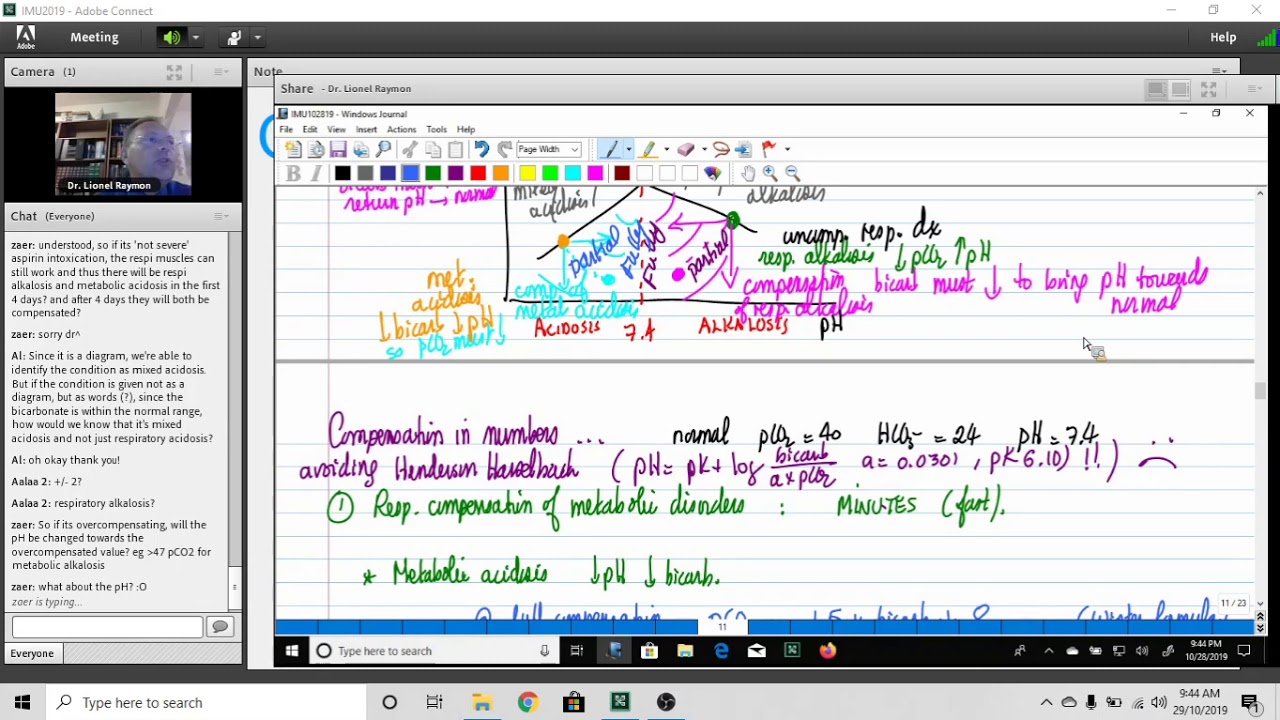 IMU2019 - Adobe Connect
Adobe
Meeting
Help
Camera (1)
Dr. Lionel Raymon
Chat (Everyone)
zaer: understood, so if its 'not severe'
aspirin intoxication, the respi muscles can
still work and thus there will be respi
alkalosis and metabolic acidosis in the first
4 days? and after 4 days they will both be
compensated?
zaer: sorry dr^
Al: Since it is a diagram, we're able to
identify the condition as mixed acidosis.
But if the condition is given not as a
diagram, but as words (?), since the
bicarbonate is within the normal range,
how would we know that it's mixed
acidosis and not just respiratory acidosis?
Al: oh okay thank you!
Aalaa 2: +/- 2?
Aalaa 2: respiratory alkalosis?
zaer: So if its overcompensating, will the
pH be changed towards the
overcompensated value? eg >47 pCO2 for
metabolic alkalosis
zaer: what about the pH? :O
zaer is typing...
Everyone
Note
Share - Dr. Lionel Raymon
IMU102819 - Windows Journal
File Edit View Insert Actions Tools Help
Page Width
B I
return pH → normal
acidosis
alkalosis
partial
partial
uncomp. resp. dx
resp. alkalosis ↓ pCO2 ↑ pH
compensation bicarb must ↓ to bring pH towards
of resp. alkalosis normal
met.
acidosis
↓ bicarb ↓ pH
so pCO2 must ↓
metab acidosis
ACIDOSIS 7.4 ALKALOSIS pH
Compensation in numbers ... normal pCO2 = 40 HCO3- = 24 pH = 7.4
avoiding Henderson Hasselbach (pH = pK + log bicarb / a x pCO2 a = 0.0301, pK 6.10) !!
① Resp. compensation of metabolic disorders : MINUTES (fast).
* Metabolic acidosis ↓ pH ↓ bicarb.
11 / 23
11
Type here to search
9:44 PM
10/28/2019
Type here to search
9:44 AM
29/10/2019